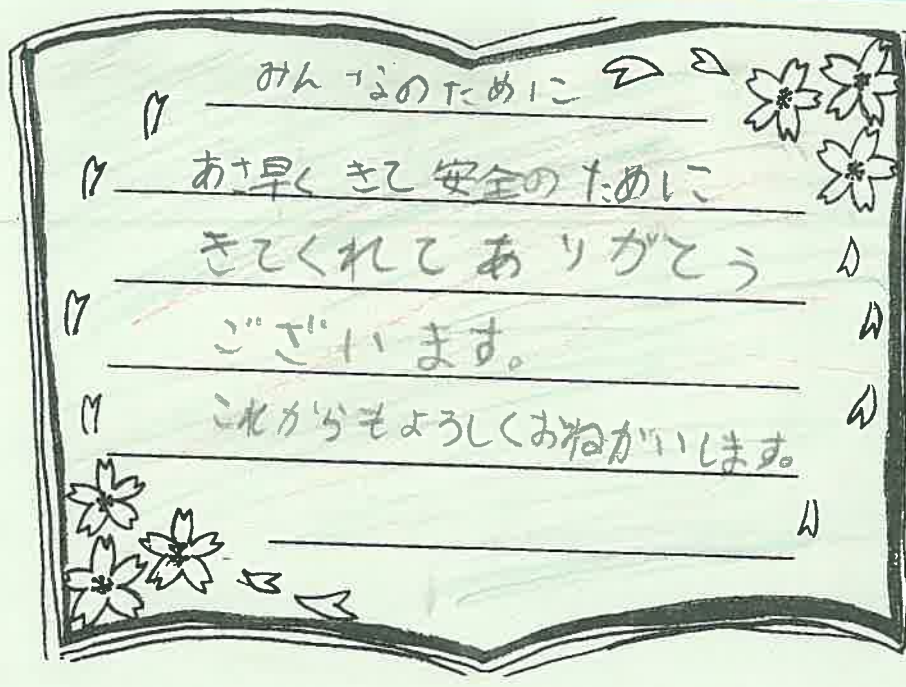 みんなのために
あさ早くきて安全のために
きてくれてありがとう
ございます。
これからもよろしくおねがいします。